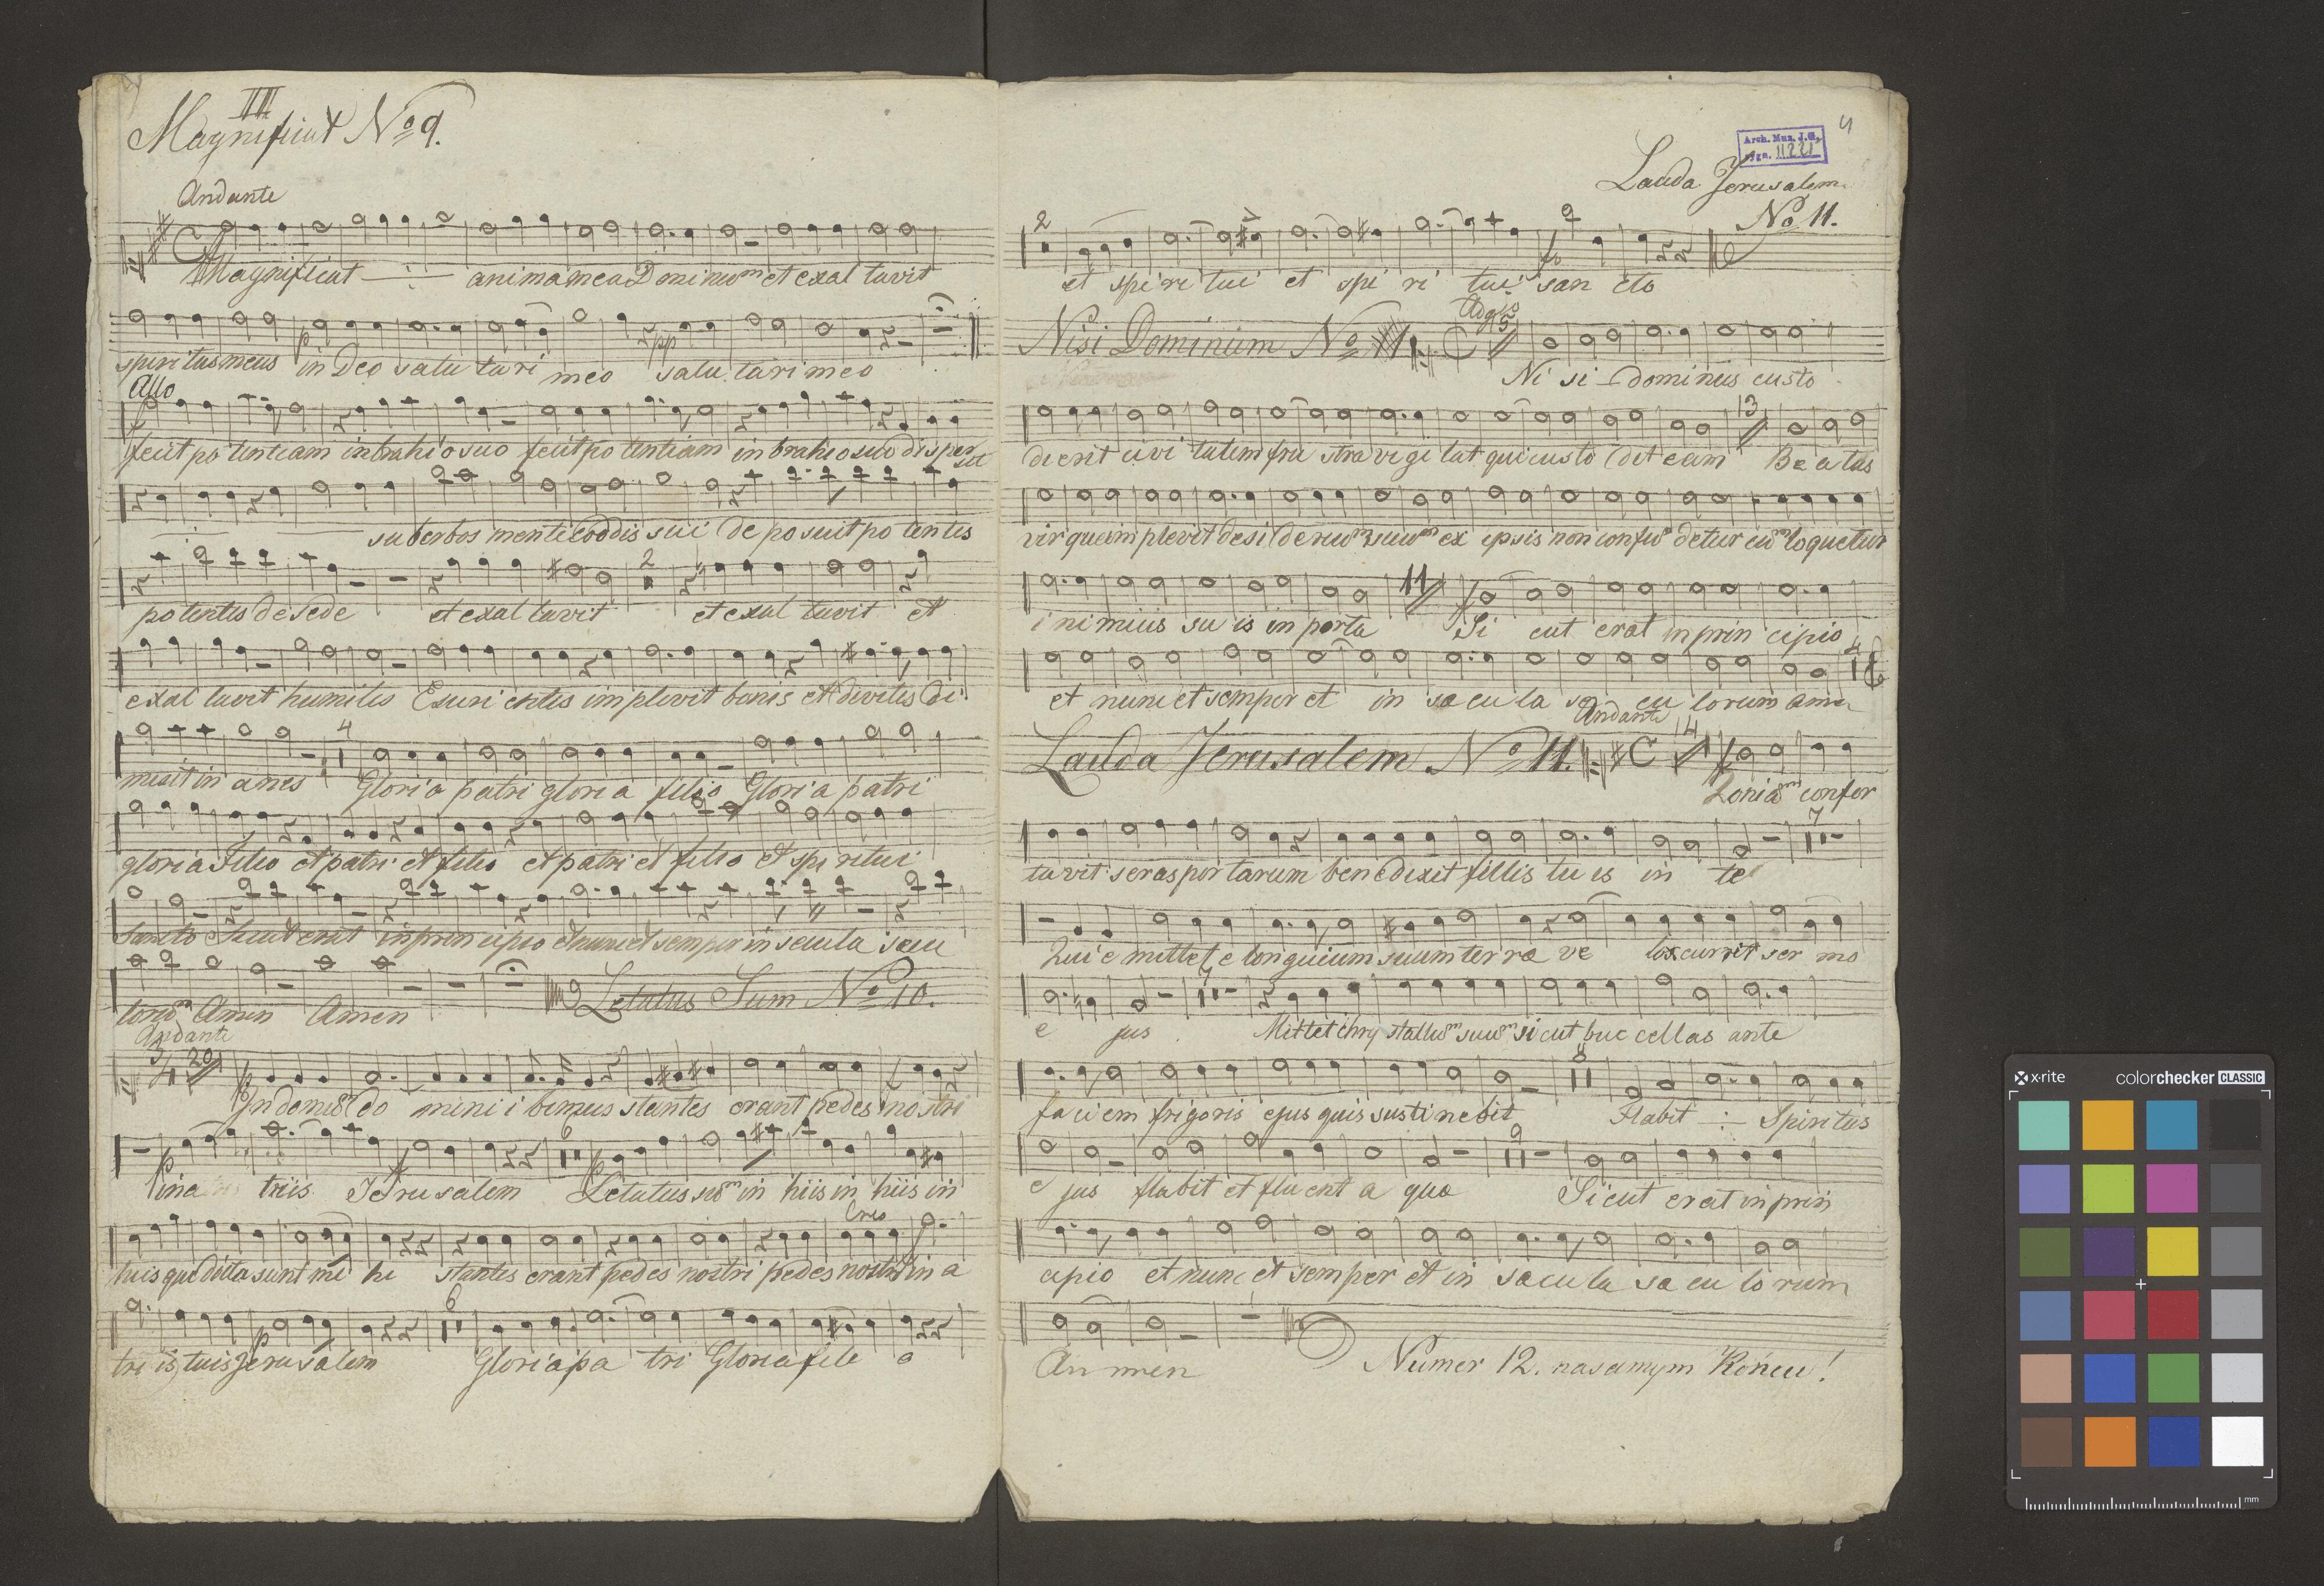 III
Magnificat No 9.
Andante
Magnificat animamea Dominum et exal tavit
p
pp
spiritus meus in Deo salu tari meo salu tari meo
Allo
fecit po tentiam in brahio suo fecit po tentiam in brahio suo disper
suberbos mente cordis sui de po suit po tentes
potentes de sede et exal tavit et exal tavit et
2
exal tavit humiles Esuri entes im plevit bonis et divites di
4
misit in anes Gloria patri gloria filio Gloria patri
gloria Filio et patri et filio et patri et filio et spi ritui
Sancto Sicut erat in prin cipio et nunc et semper in secula secu
lorum Amen Amen
Letatus Sum No 10.
Andante
3/4 20
In domum do mini i bimus stantes erant pedes nostri
6
in a triis Jerusalem Letatus sum in hiis in hiis in
Cres
huis que dicta sunt mi hi stantes erant pedes nostri pedes nostri in a
6
p
tri is tuis Jerusalem Gloria pa tri Gloria file o
4
Arch. Muz. J. G.
Sygn. 11221
Lauda Jerusalem
No 11.
2
et spi ri tui et spi ri tui san cto
Nisi Dominum No
Adgo
C
Ni si dominus custo
13
dierit civi tatem fru stra vigi lat qui custo dit eam Be a tus
vir qui im plevit desi derium suum ex ipsis non confun detur cum loquetur
11
i nimicis su is in porta Si cut erat in prin cipio
4
et nunc et semper et in sa cu la sa cu lorum amen
Andante
Lauda Jerusalem No 11.
C 14
Quoniam confor
7
tavit seras portarum benedixit filiis tu is in te
Qui e mittet e loquium suum terræ ve lox currit ser mo
7
e jus Mittet chry stallum suum sicut buc cellas ante
8
faciem frigoris ejus quis sustinebit Flabit Spiritus
9
e jus flabit et fluent a quæ Sicut erat in prin
cipio et nunc et semper et in sæcula sæ cu lo rum
An men
Numer 12. na samym Końcu!
x·rite
colorchecker CLASSIC
mm